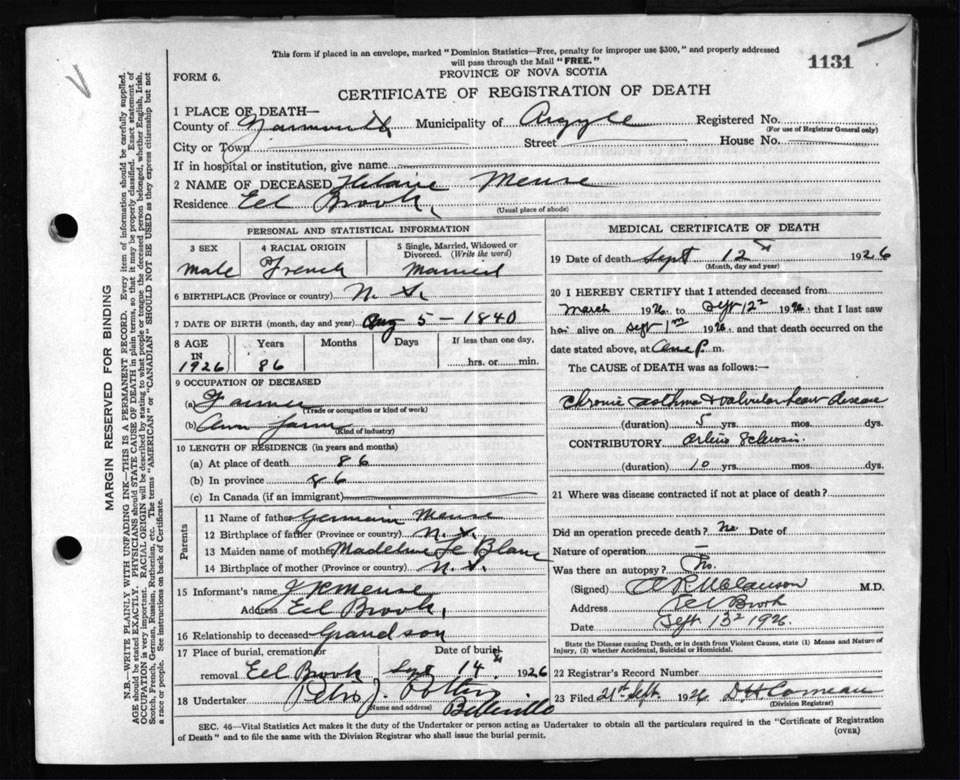 This form if placed in an envelope, marked "Dominion Statistics—Free, penalty for improper use $300," and properly addressed
will pass through the Mail "FREE."
1131
FORM 6.
PROVINCE OF NOVA SCOTIA
CERTIFICATE OF REGISTRATION OF DEATH
1 PLACE OF DEATH—
County of Yarmouth Municipality of Argyle Registered No.
(For use of Registrar General only)
City or Town Street House No.
If in hospital or institution, give name
2 NAME OF DECEASED Hilaire Meuse
Residence Eel Brook,
(Usual place of abode)
PERSONAL AND STATISTICAL INFORMATION
3 SEX 4 RACIAL ORIGIN 5 Single, Married, Widowed or
Divorced. (Write the word)
Male French Married
6 BIRTHPLACE (Province or country) N. S.
7 DATE OF BIRTH (month, day and year) Aug 5 - 1840
8 AGE Years Months Days If less than one day,
IN
1926 86 hrs. or min.
9 OCCUPATION OF DECEASED
(a) Farmer
(Trade or occupation or kind of work)
(b) Own farm
(Kind of industry)
10 LENGTH OF RESIDENCE (in years and months)
(a) At place of death 86
(b) In province 86
(c) In Canada (if an immigrant)
Parents
11 Name of father Germain Meuse
12 Birthplace of father (Province or country) N. S.
13 Maiden name of mother Madeline Le Blanc
14 Birthplace of mother (Province or country) N. S.
15 Informant's name Meuse
Address Eel Brook,
16 Relationship to deceased Grandson
17 Place of burial, cremation or Date of burial
removal Eel Brook Sept 14 1926
18 Undertaker J.
(Name and address) Belleville
MEDICAL CERTIFICATE OF DEATH
19 Date of death Sept 12 1926
(Month, day and year)
20 I HEREBY CERTIFY that I attended deceased from
March 1926 to Sept 12 1926. that I last saw
alive on Sept 1926. and that death occurred on the
date stated above, at One P. m.
The CAUSE of DEATH was as follows:—
Chronic asthma & valvular heart disease
(duration) 5 yrs. mos. dys.
CONTRIBUTORY Arterio Sclerosis
(duration) 10 yrs. mos. dys.
21 Where was disease contracted if not at place of death?
Did an operation precede death? No Date of
Nature of operation —
Was there an autopsy? No.
(Signed) M.D.
Address Eel Brook
Date Sept. 13 1926.
State the Disease causing Death, or in death from Violent Causes, state (1) Means and Nature of
Injury, (2) whether Accidental, Suicidal or Homicidal.
22 Registrar's Record Number
23 Filed 21st Sept. 1926 D H Comeau
(Division Registrar)
SEC. 46—Vital Statistics Act makes it the duty of the Undertaker or person acting as Undertaker to obtain all the particulars required in the "Certificate of Registration
of Death" and to file the same with the Division Registrar who shall issue the burial permit.
(OVER)
MARGIN RESERVED FOR BINDING
N.B.—WRITE PLAINLY WITH UNFADING INK—THIS IS A PERMANENT RECORD. Every item of information should be carefully supplied.
AGE should be stated EXACTLY. PHYSICIANS should STATE CAUSE OF DEATH in plain terms, so that it may be properly classified. Exact statement of
OCCUPATION is very important. RACIAL ORIGIN will be described by stating to what people or tongue the deceased person belonged, whether English, Irish,
Scotch, French, German, Russian, Ruthenian, etc. The terms "AMERICAN" or "CANADIAN" SHOULD NOT BE USED as they express citizenship but not
a race or people. See instructions on back of Certificate.